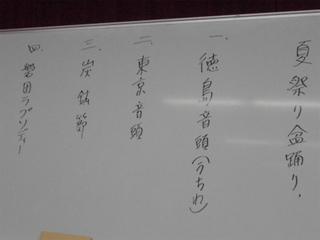 夏祭り盆踊り.
一、徳島音頭(うちわ)
二、東京音頭
三、炭鉱節
四、磐田ラプソディー